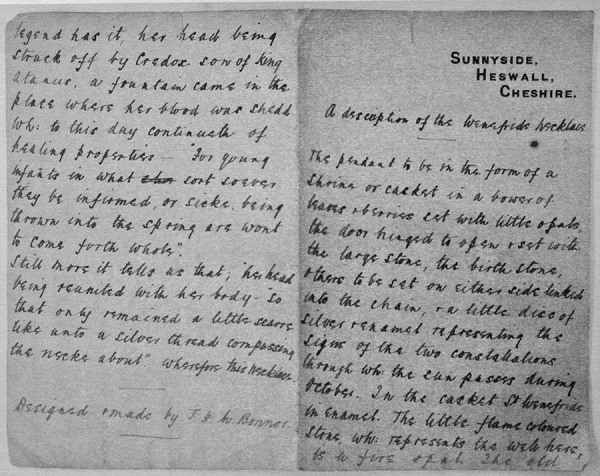 SUNNYSIDE,
HESWALL,
CHESHIRE.
A description of the Wenefride Necklace
The pendant to be in the form of a
shrine or casket in a bower of
leaves & berries set with little opals,
the door hinged to open & set with
the large stone, the birth stone,
others to be set on either side linked
into the chain, & a little disc of
silver & enamel representing the
signs of the two constallations
through wh: the sun passes during
October. In the casket St Wenefride
in enamel. The little flame coloured
stone, wh: represents the well here,
is a fire opal. The old
legend has it, her head being
struck off by Credox son of King
Alanus, a fountain came in the
place where her blood was shedd
wh: to this day continueth of
healing properties — "For young
infants in what sort soever
they be infirmed, or sicke, being
thrown into the spring are wont
to come forth whole".
Still more it tells us that; "her head
being reunited with her body - so
that only remained a little scarre
like unto a silver thread compassing
the necke about" wherefore this Necklace.
Designed & made by J. H. M. Bonnor.